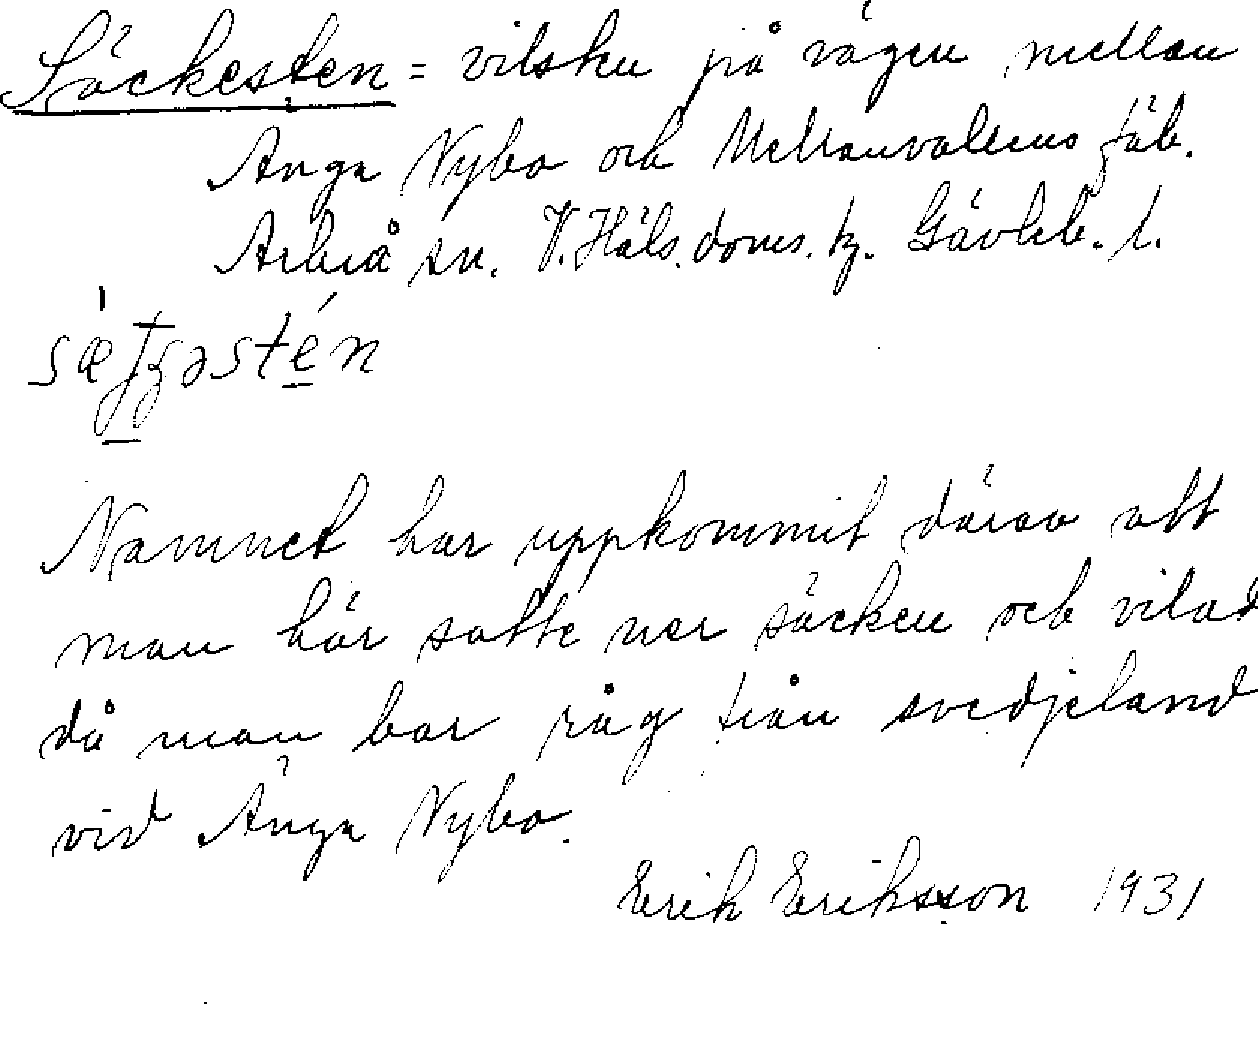 Säckesten = vilsten på vägen mellan
Änga Nybo och Mellanvallens fäb.
Arbrå sn. V. Häls. doms. tg. Gävleb. l.
Namnet har uppkommit därav att
man här satte ner säcken och vilad
då man bar råg från svedjeland
vid Änga Nybo.
Erik Eriksson 1931